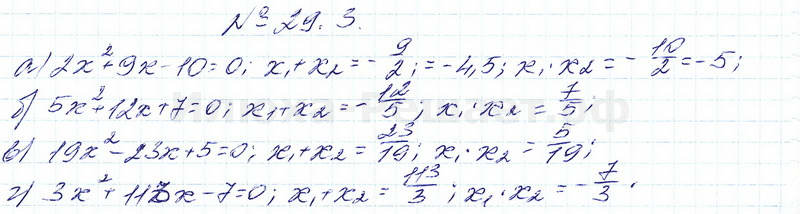 № 29. 3.
а) 2x²+9x-10=0; x₁+x₂=-9/2;=-4,5; x₁·x₂=-10/2=-5;
б) 5x²+12x+7=0; x₁+x₂=-12/5; x₁·x₂=7/5;
в) 19x²-23x+5=0; x₁+x₂=23/19; x₁·x₂=5/19;
г) 3x²+113x-7=0; x₁+x₂=113/3; x₁·x₂=-7/3.